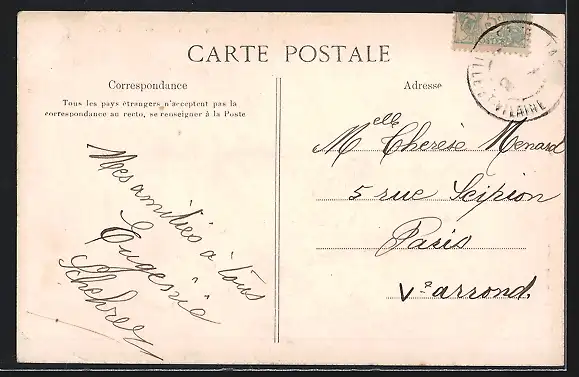 CARTE POSTALE
Correspondance
Tous les pays étrangers n'acceptent pas la
correspondance au recto, se renseigner à la Poste
Mes amitiés à tous
Eugénie
Adresse
Melle Therese Menard
5 rue Scipion
Paris
Ve arrond.
ILLE-ET-VILAINE